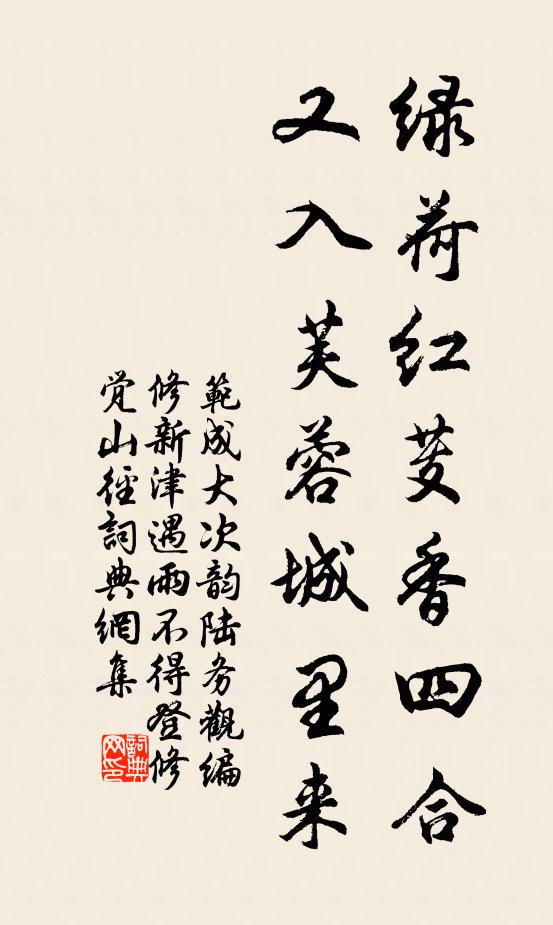 绿荷红芰香四合
又入芙蓉城里来
範成大次韵陆务觀编
修新津遇雨不得登修
觉山径詞典網集
詞典网印